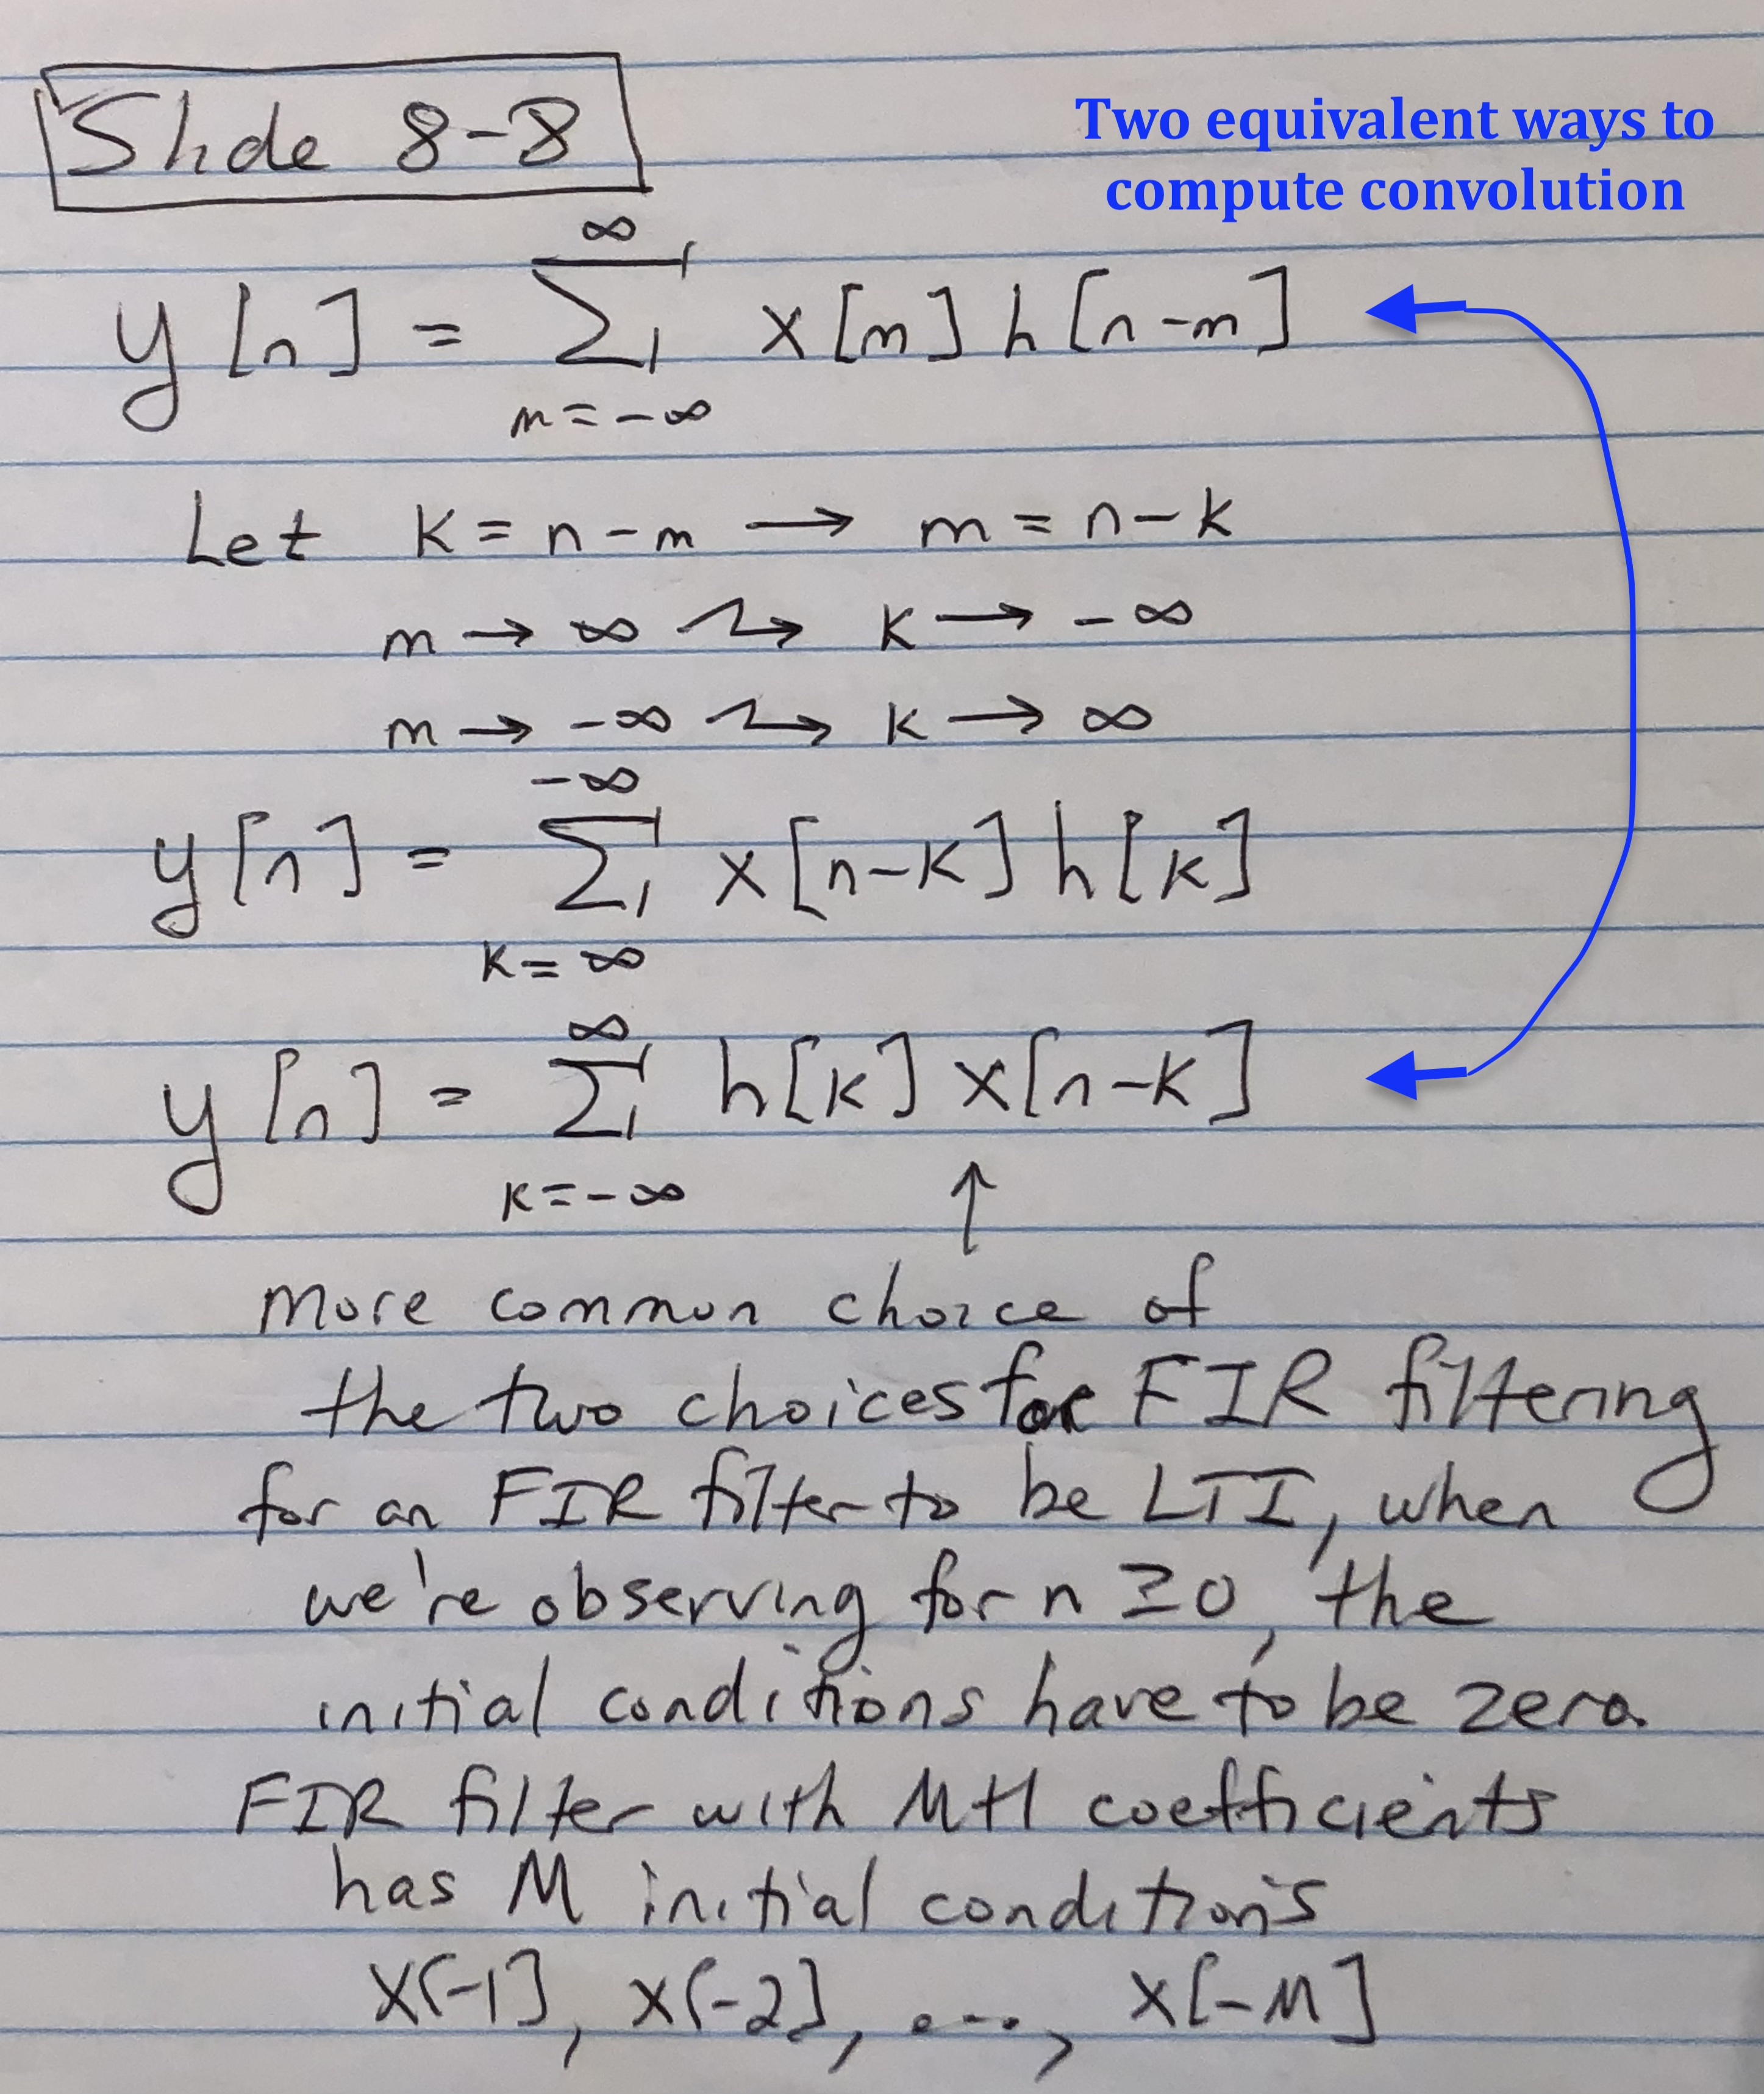 Slide 8-8
Two equivalent ways to
compute convolution
y[n] = ∑_{m=-∞}^{∞} x[m] h[n-m]
Let k = n-m → m = n-k
m → ∞ ↝ k → -∞
m → -∞ ↝ k → ∞
y[n] = ∑_{k=∞}^{-∞} x[n-k] h[k]
y[n] = ∑_{k=-∞}^{∞} h[k] x[n-k]
↑
more common choice of
the two choices for FIR filtering
for an FIR filter to be LTI, when
we're observing for n ≥ 0, the
initial conditions have to be zero.
FIR filter with M+1 coefficients
has M initial conditions
x[-1], x[-2], ..., x[-M]